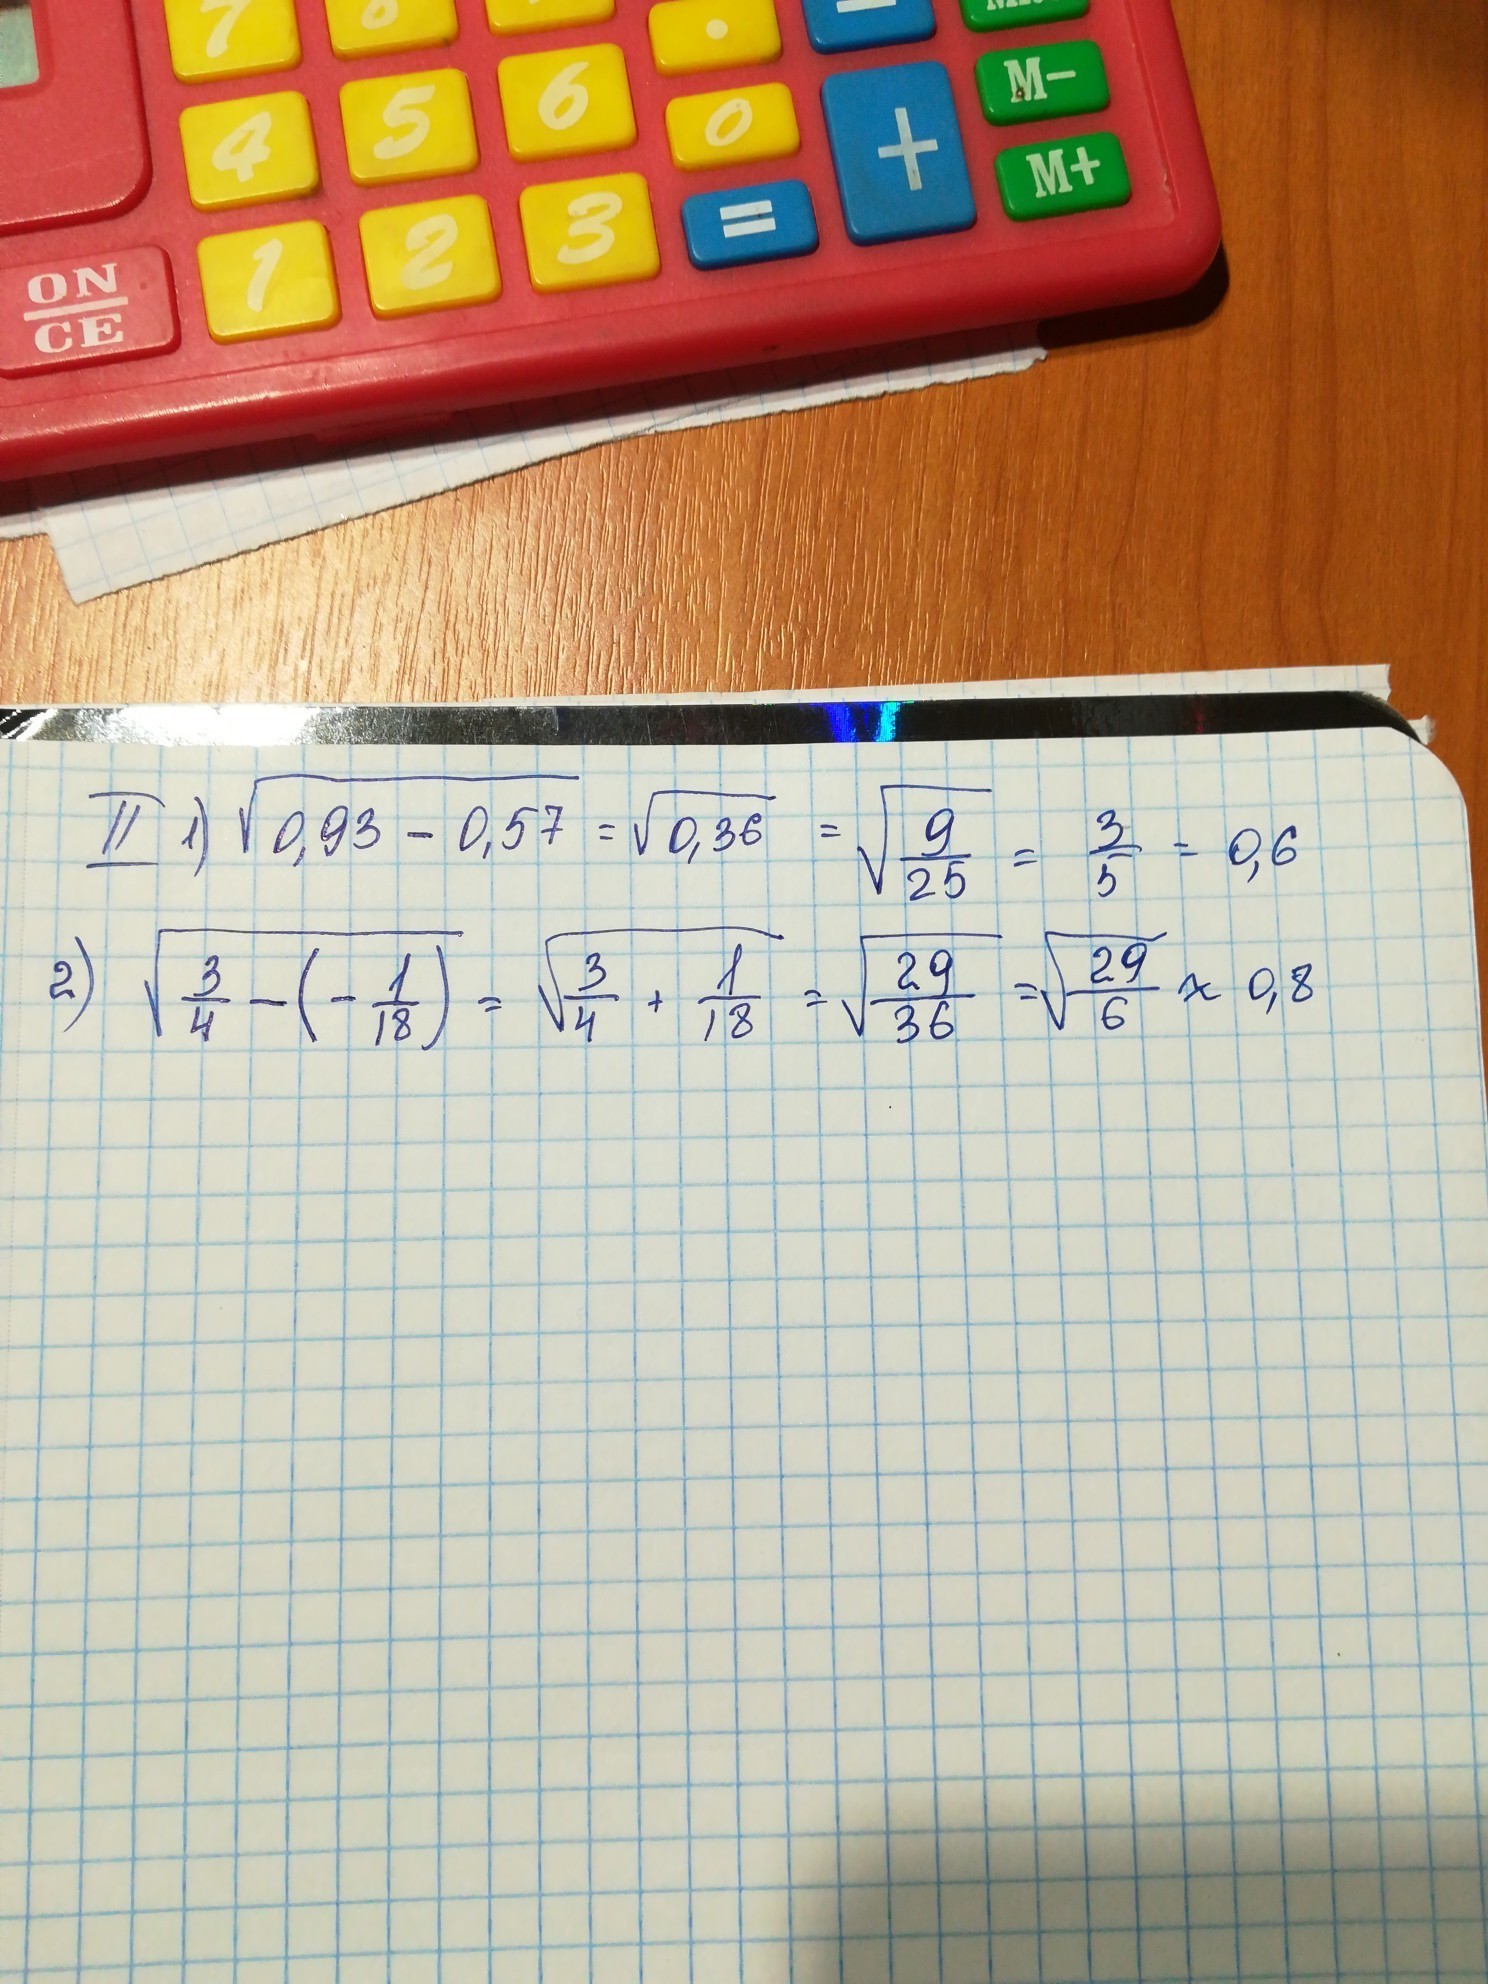 7
4 5 6 0 + M-
1 2 3 = M+
ON
CE
II 1) √(0,93 - 0,57) = √(0,36) = √(9/25) = 3/5 = 0,6
2) √(3/4 - (- 1/18)) = √(3/4 + 1/18) = √(29/36) = √29/6 ≈ 0,8